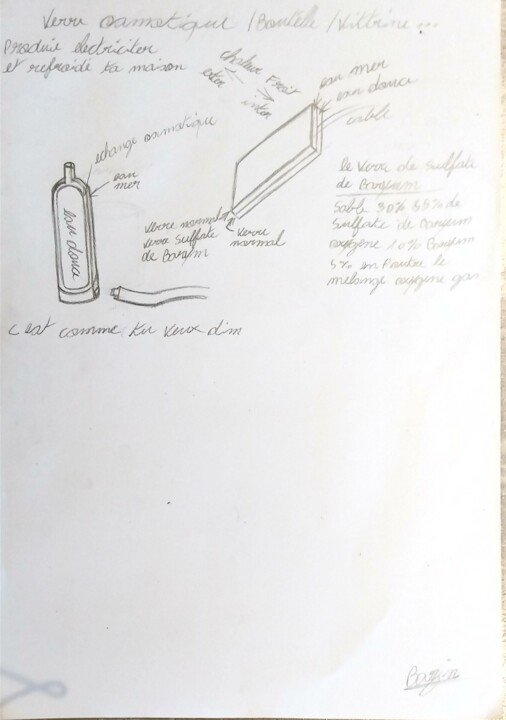 Verre osmotique / Boutelle / Vittrine ...
Produie electriciter
et refroidé ta maison
chaleur Froit
exter
inter
eau mer
eau douce
cable
echange osmatique
eau
mer
eau douce
Verre normal
verre Sulfate
de Baryum
verre
normal
le verre de Sulfate
de Baryum
Sable 30% 55% de
Sulfate de Baryum
oxygène 10% Baryum
5% en Poudre le
melange oxygène gas
c est comme tu veux dim